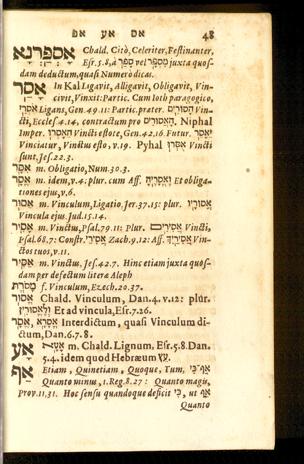 אס אע אפ 48
אָסְפַּרְנָא Chald. Citò, Celeriter, Festinanter,
Esr. 5.8, à סָפַר vel מִסְפָּר juxta quos-
dam deductum, quasi Numerò dicas.
אָסַר In Kal Ligavit, Alligavit, Obligavit, Vin-
civit, Vinxit: Partic. Cum Ioth paragogico,
אֹסְרִי Ligans, Gen. 49.11: Partic. prater. הָסוּרִים Vin-
cti, Eccles. 4.14, contractum pro הָאֲסוּרִים. Niphal
Imper. הֵאָסְרוּ Vincti estote, Gen. 42.16. Futur. יֵאָסֵר
Vinciatur, Vinctus esto, v. 19. Pyhal אֻסְּרוּ Vincti
sunt, Jes. 22.3.
m. Obligatio, Num. 30.3.
m. idem, v. 4: plur. cum Aff. וֶאֱסָרֶיהָ Et obliga-
tiones ejus, v. 6.
אֵסוּר m. Vinculum, Ligatio, Jer. 37.15: plur. אֲסוּרָיו
Vincula ejus, Jud. 15.14.
m. Vinctus, Psal. 79.11: Plur. אֲסִירִים Vincti,
Psal. 68.7: Constr. אֲסִירֵי Zach. 9.12: Aff. אֲסִירַיִךְ Vin-
ctos tuos, v. 11.
m. Vinctus, Jes. 42.7. Hinc etiam juxta quos-
dam per defectum literæ Aleph
מָסֹרֶת f. Vinculum, Ezech. 20.37.
אֱסוּר Chald. Vinculum, Dan. 4. v. 12: plur.
וְלֶאֱסוּרִין Et ad vincula, Esr. 7.26.
אֱסָר, אֱסָרָא Interdictum, quasi Vinculum di-
ctum, Dan. 6. 7. 8.
אָע m. Chald. Lignum, Esr. 5.8. Dan.
5.4. idem quod Hebræum עֵץ
אַף Etiam, Quinetiam, Quoque, Tum, אַף־כִּי
Quanto minus, 1. Reg. 8.27: Quanto magis,
Prov. 11.31. Hoc sensu quandoque deficit כִּי, ut אַף
Quanto